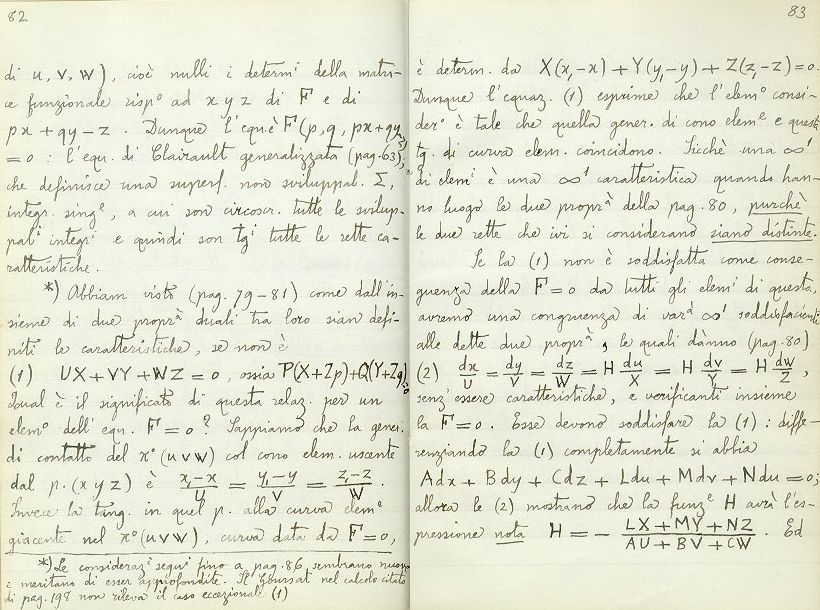 82
di u, v, w), cioè nulli i determⁱ della matri-
ce funzionale rispᵒ ad x y z di F e di
px + qy - z . Dunque l'equ. è F(p, q, px + qy - z)
= 0 : l'equ. di Clairault generalizzata (pag. 63),
che definisce una superf. non sviluppab. Σ,
integr. singᵉ, a cui son circoscr. tutte le svilup-
pabⁱ integrⁱ e quindi son tgⁱ tutte le rette ca-
ratteristiche.
*) Abbiam visto (pag. 79-81) come dall'in-
sieme di due proprᵃ duali tra loro sian defi-
niti le caratteristiche, se non è
(1) UX + VY + WZ = 0, ossia P(X+Zp)+Q(Y+Zq)=0
Qual è il significato di questa relaz. per un
elemᵒ dell'equ. F = 0 ? Sappiamo che la gener.
di contatto del πᵒ (u v w) col cono elem. uscente
dal p. (x y z) è x₁-x/U = y₁-y/V = z₁-z/W .
Invece la tang. in quel p. alla curva elemᵉ
giacente nel πᵒ (u v w), curva data da F = 0,
*) Le considerazⁱ segⁱ fino a pag. 86, sembrano nuove
e meritano di esser approfondite. Il Goursat nel calcolo citato
di pag. 198 non rileva il caso eccezionale (1)
83
è determ. da X(x₁-x) + Y(y₁-y) + Z(z₁-z) = 0.
Dunque l'equaz. (1) esprime che l'elemᵒ consi-
derᵒ è tale che quella gener. di cono elemᵉ e questa
tg. di curva elem. coincidono. Sicchè una ∞¹
di elemⁱ è una ∞¹ caratteristica quando han-
no luogo le due proprᵃ della pag. 80, purchè
le due rette che ivi si considerano siano distinte.
Se la (1) non è soddisfatta come conse-
guenza della F = 0 da tutti gli elemⁱ di questa,
avremo una congruenza di varᵃ ∞¹ soddisfacenti
alle dette due proprᵃ, le quali dànno (pag. 80)
(2) dx/U = dy/V = dz/W = H du/X = H dv/Y = H dw/Z ,
senz'essere caratteristiche, e verificanti insieme
la F = 0. Esse devono soddisfare la (1) : diffe-
renziando la (1) completamente si abbia
Adx + Bdy + Cdz + Ldu + Mdv + Ndu = 0;
allora le (2) mostrano che la funzᵉ H avrà l'es-
pressione nota H = - LX + MY + NZ/AU + BV + CW . Ed